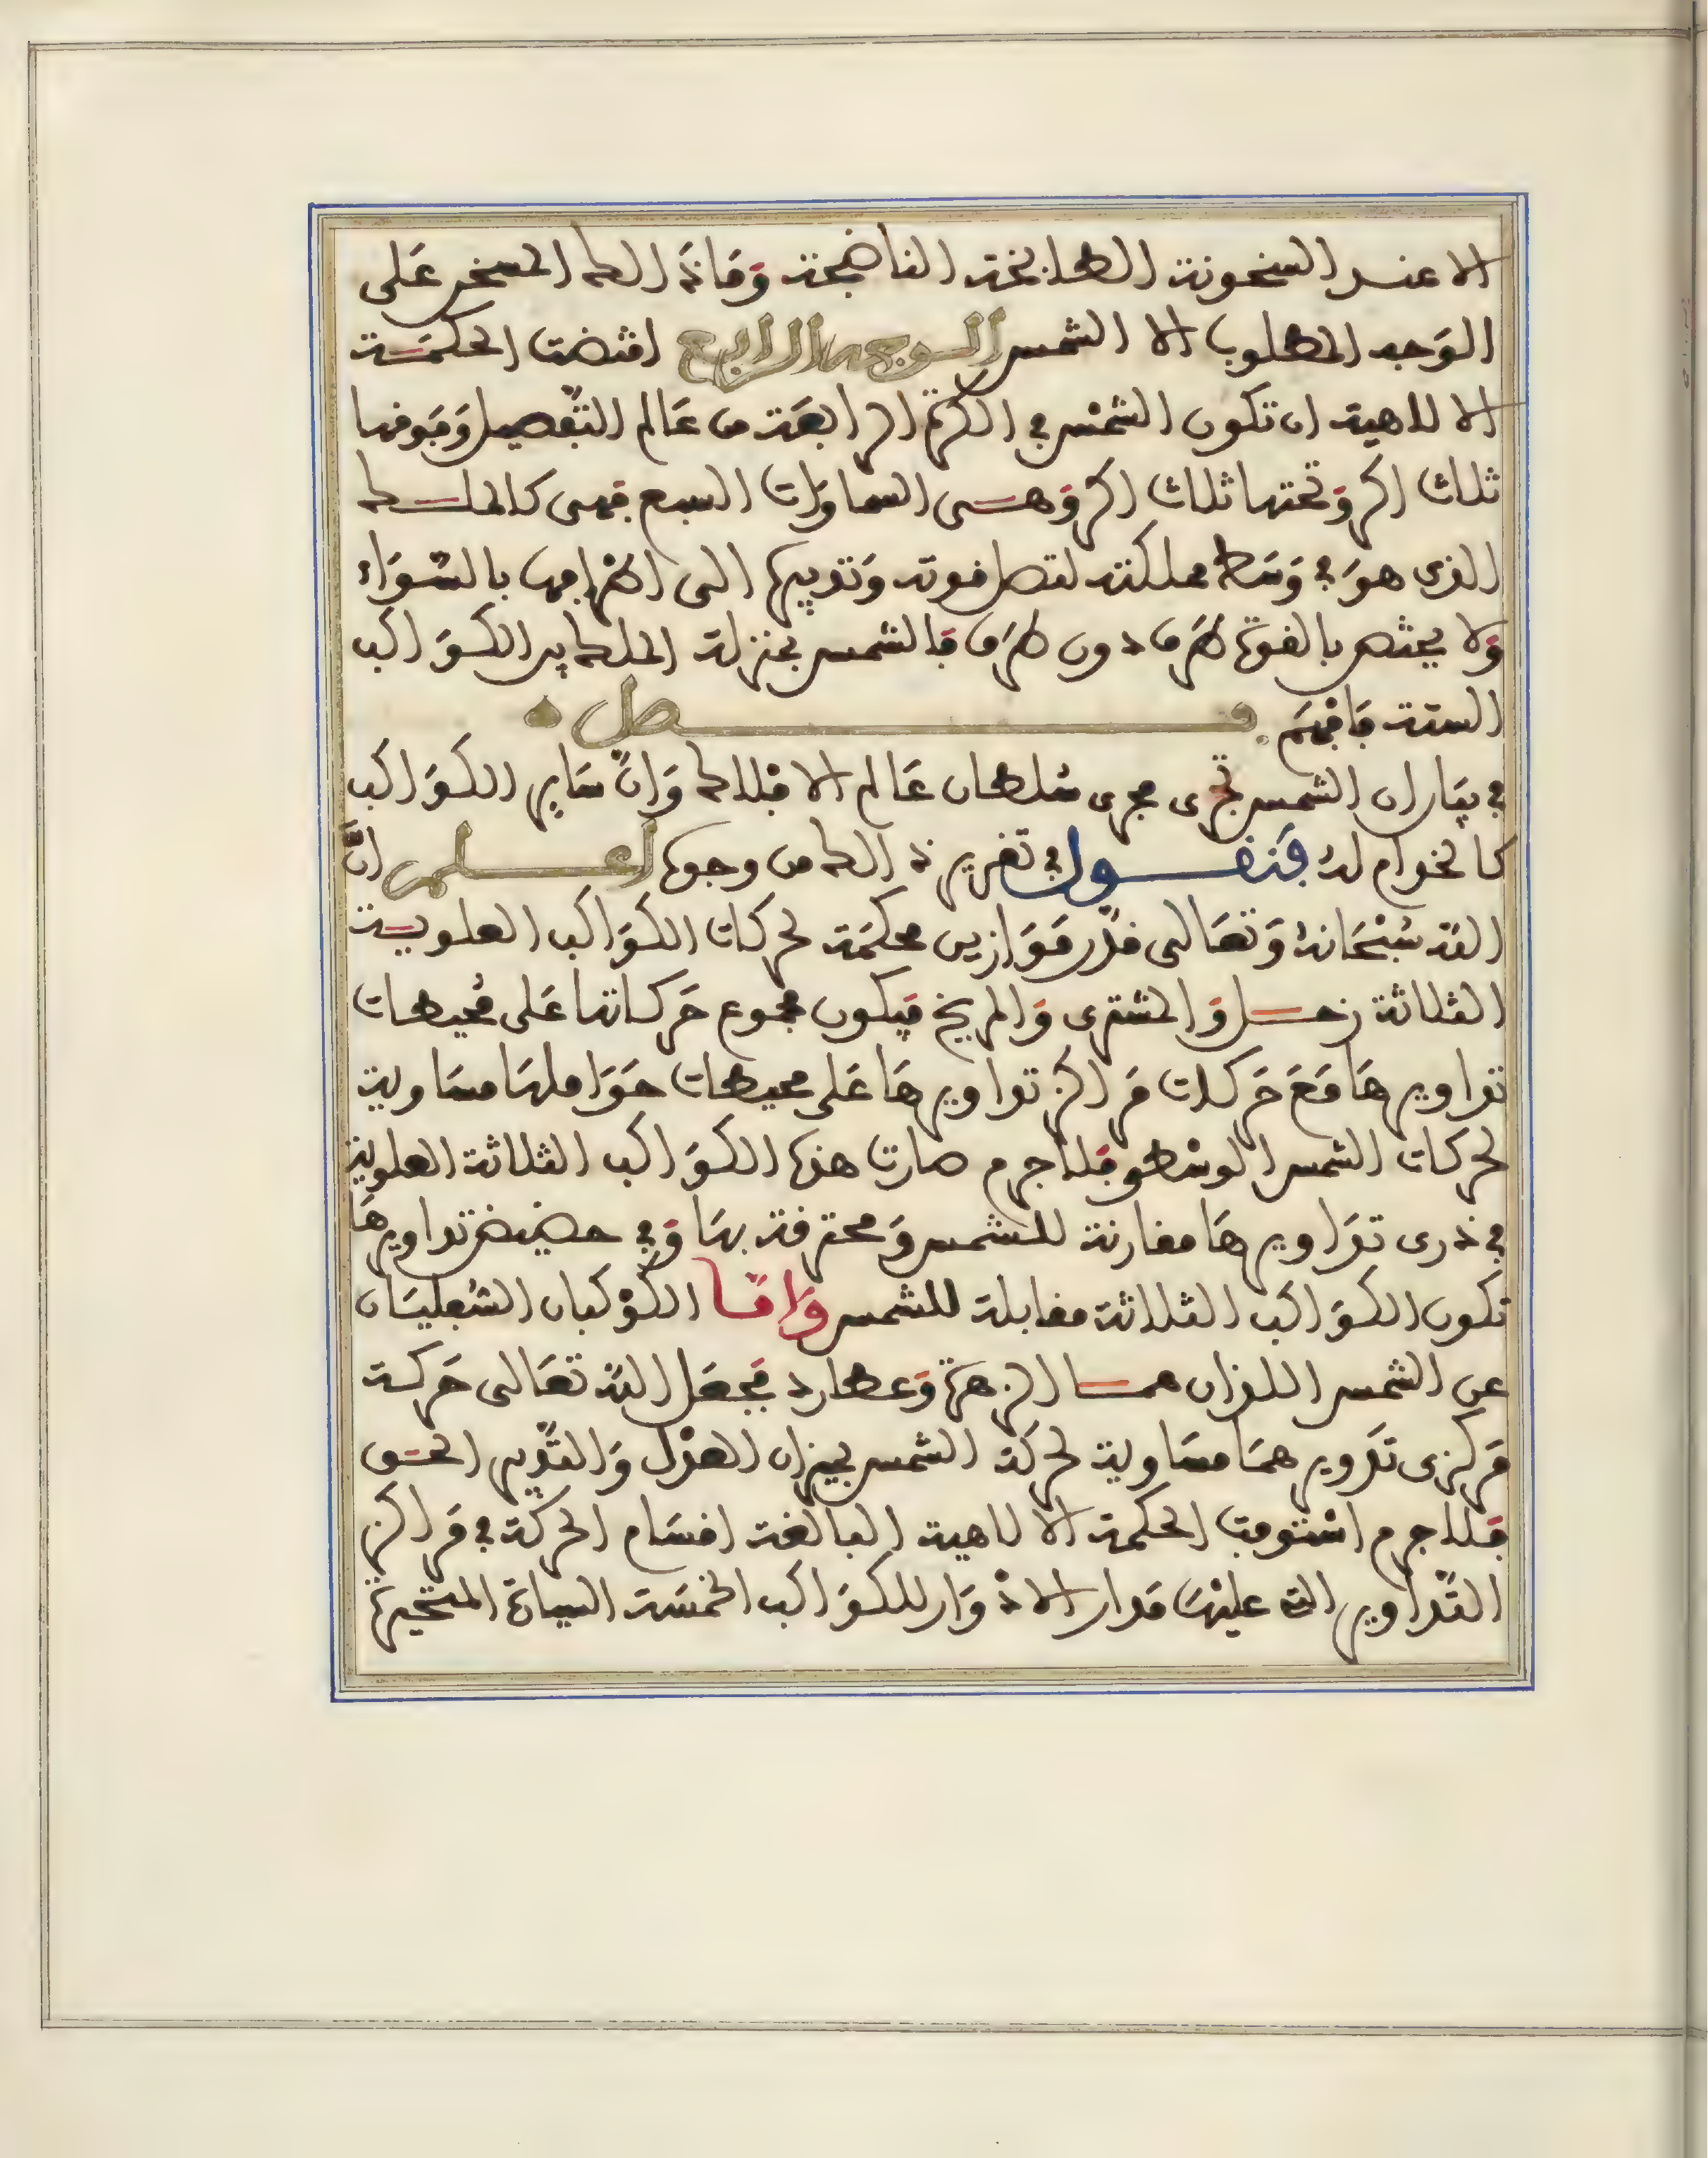 الا عند السخونة الطابخة الناضجة وما ذالك المسخر على
الوجه المطلوب الا الشمس الوجه الرابع اقتضت الحكمة
الالاهية ان تكون الشمس في الكرة الرابعة من عالم التفصيل وفوقها
ثلاث اكر وتحتها ثلاث اكر وهي السماوات السبع فهي كالملك
الذي هو في وسط مملكته لتصل قوته وتدبيره الى اطرافها بالسواء
ولا يختص بالقوة طرف دون طرف فالشمس بمنزلة الملك بين الكواكب
الستة فافهم فصل
في بيان ان الشمس تجري مجرى سلطان عالم الافلاك وان ساير الكواكب
كالخوادم له فنقول في تقرير ذالك من وجوه اعلم ان
الله سبحانه وتعالى قدر موازين محكمة لحركات الكواكب العلوية
الثلاثة زحل والمشتري والمريخ فيكون مجموع حركاتها على محيطات
تداويرها مع حركات مراكز تداويرها على محيطات حواملها مساوية
لحركات الشمس الوسطى فلا جرم صارت هذه الكواكب الثلاثة العلوية
في ذرى تداويرها مقارنة للشمس ومحترقة بها وفي حضيض تداويرها
تكون الكواكب الثلاثة مقابلة للشمس واما الكوكبان السفليان
عن الشمس اللذان هما الزهرة وعطارد فجعل الله تعالى حركة
مركزي تدويرهما مساوية لحركة الشمس بميزان العدل والتدبير الحق
فلا جرم استوفت الحكمة الالاهية البالغة اقسام الحركة في مراكز
التداوير التي عليها مدار الادوار للكواكب الخمسة السيارة المتحيرة